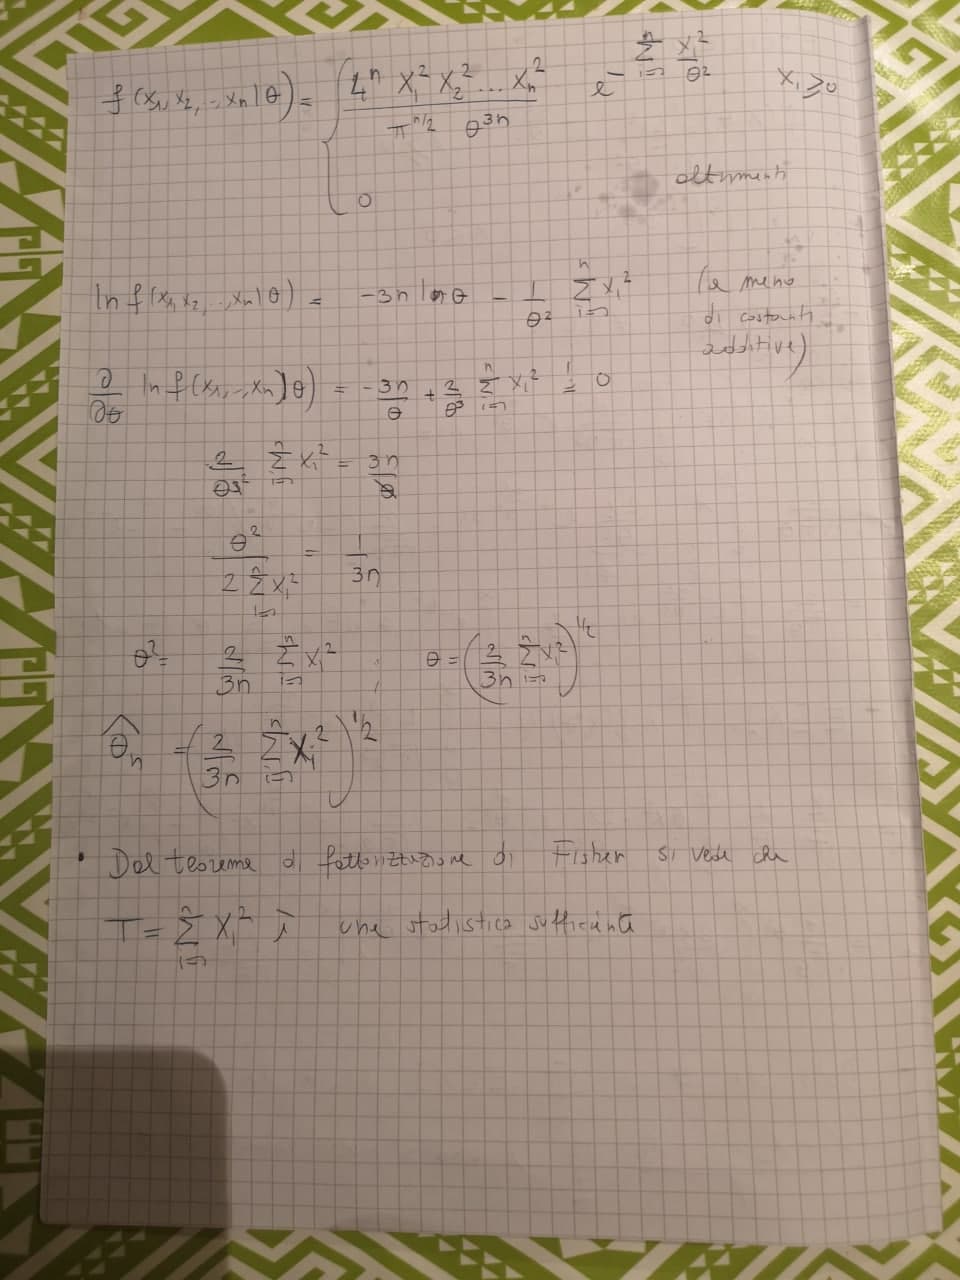 f(x₁, x₂, .., xₙ | θ) = { 4ⁿ x₁² x₂² ... xₙ² / π^(n/2) θ³ⁿ e^(-∑ᵢ₌₁ⁿ xᵢ²/θ²) xᵢ ≥ 0
0 altrimenti
ln f(x₁, x₂, .., xₙ | θ) = -3n ln θ - 1/θ² ∑ᵢ₌₁ⁿ xᵢ² (a meno
di costanti
additive)
∂/∂θ ln f(x₁, .., xₙ | θ) = -3n/θ + 2/θ³ ∑ᵢ₌₁ⁿ xᵢ² =! 0
2/θ² ∑ᵢ₌₁ⁿ xᵢ² = 3n
θ² / 2 ∑ᵢ₌₁ⁿ xᵢ² = 1/3n
θ² = 2/3n ∑ᵢ₌₁ⁿ xᵢ² ; θ = (2/3n ∑ᵢ₌₁ⁿ xᵢ²)^(1/2)
θ̂ₙ = (2/3n ∑ᵢ₌₁ⁿ Xᵢ²)^(1/2)
• Dal teorema di fattorizzazione di Fisher si vede che
T = ∑ᵢ₌₁ⁿ Xᵢ² è una statistica sufficiente